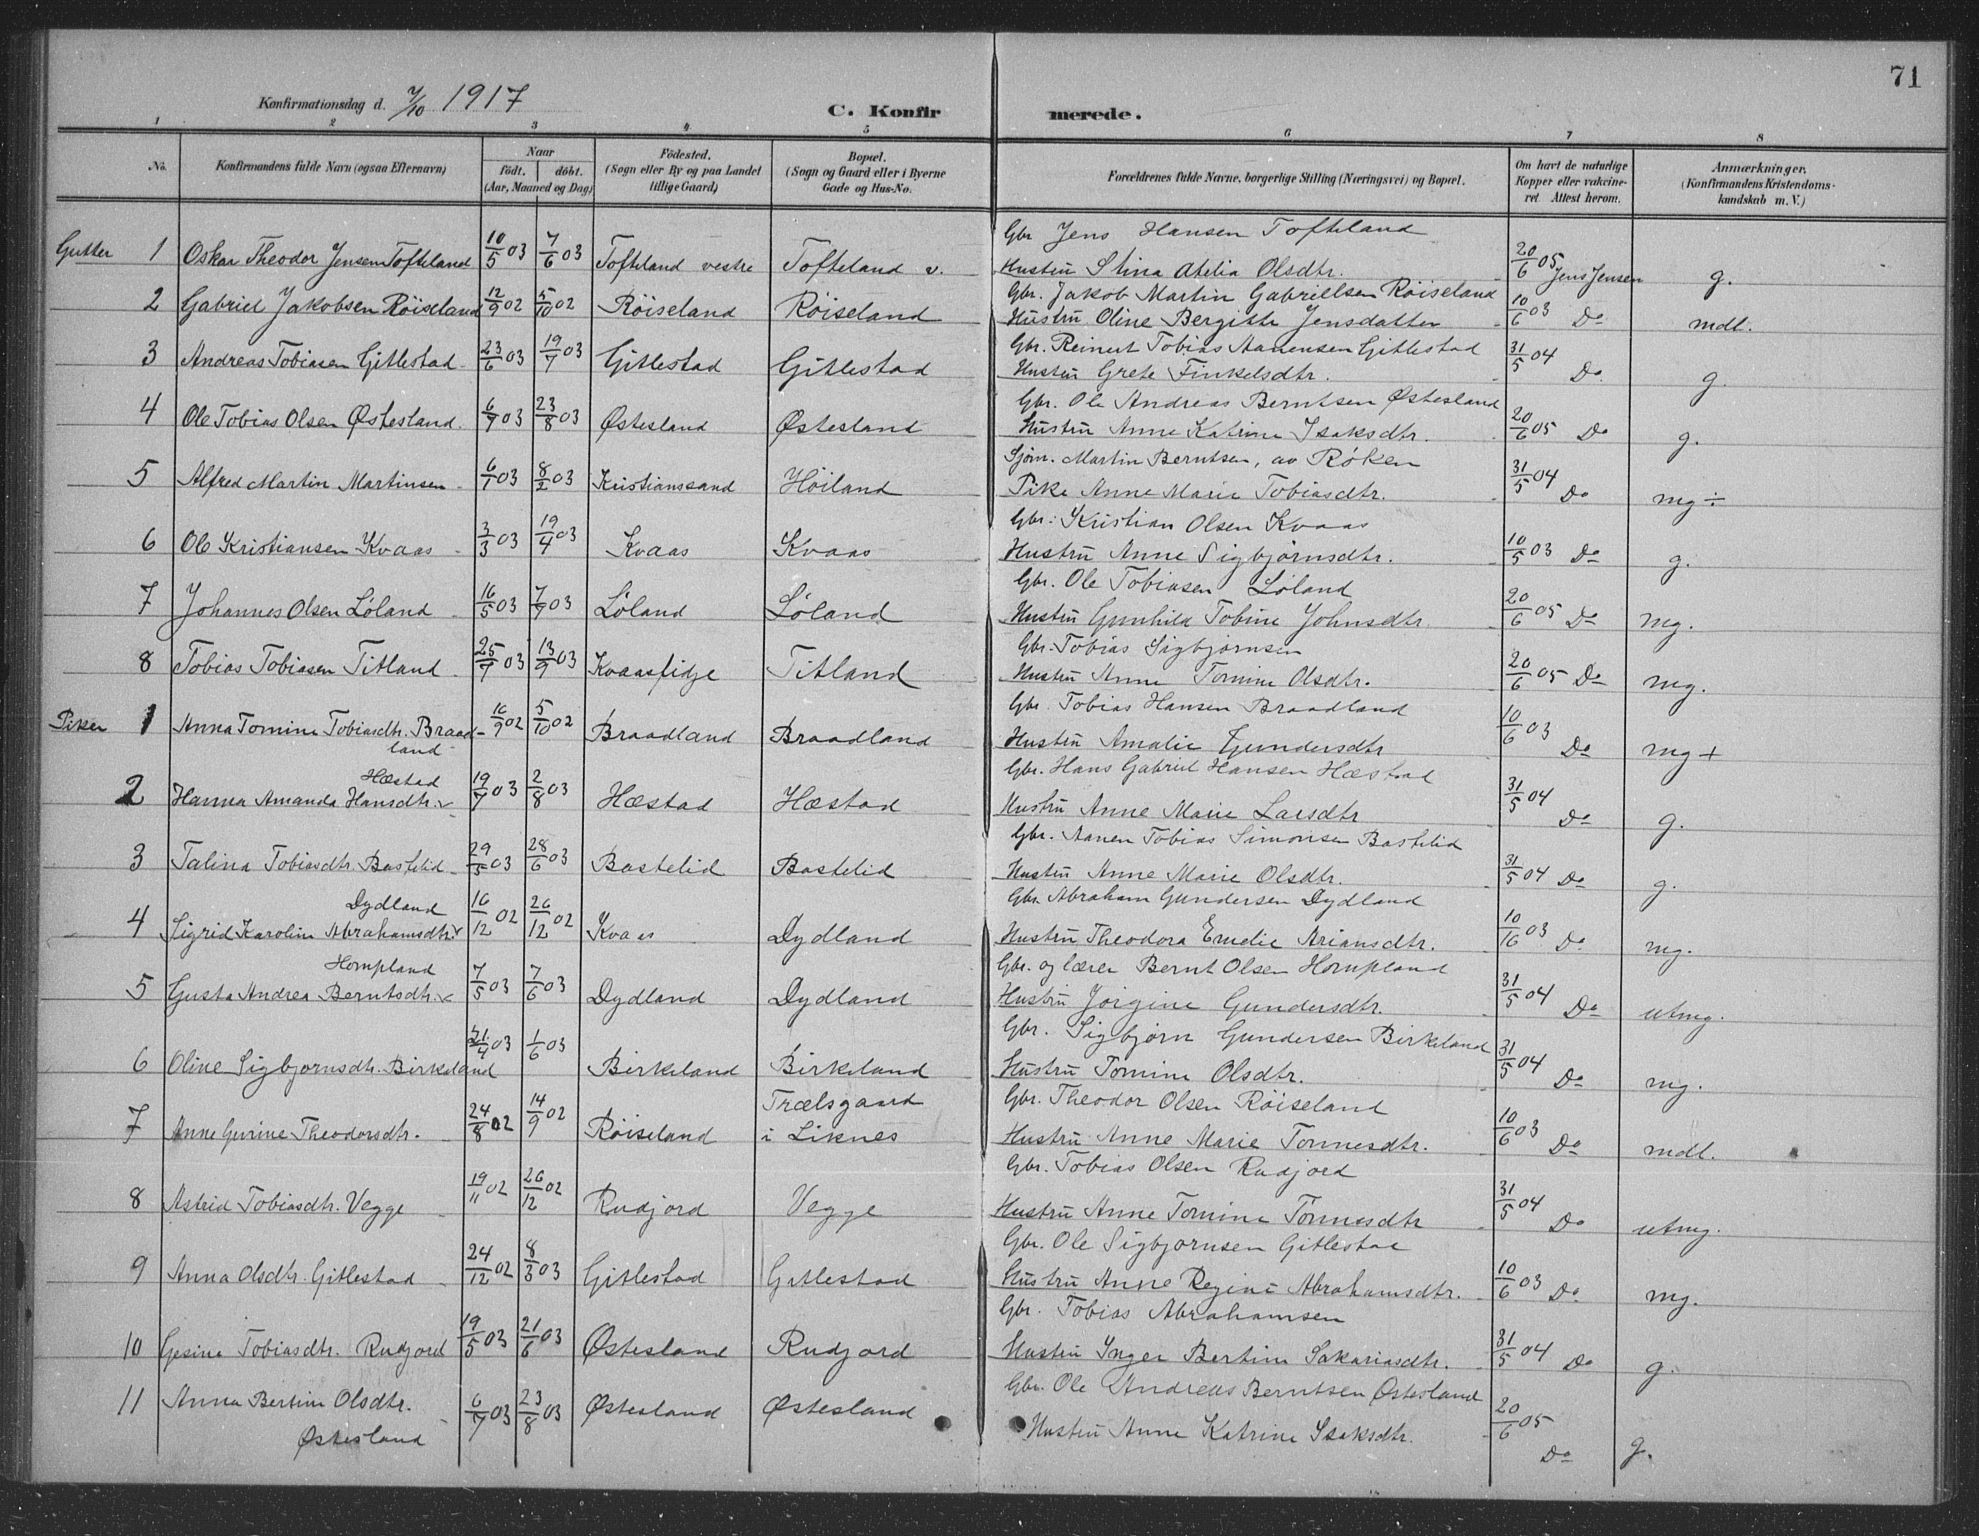 71
Konfirmationsdag d. 7/10 1917 C. Konfirmerede.
1 2 3 4 5 6 7 8
No. Konfirmandens fulde Navn (ogsaa Efternavn) Naar født. døbt. (Aar, Maaned og Dag) Fødested. (Sogn eller By og paa Landet tillige Gaard) Bopæl. (Sogn og Gaard eller i Byerne Gade og Hus-No. Forældrenes fulde Navne, borgerlige Stilling (Næringsvei) og Bopæl. Om havt de naturlige Kopper eller vakcineret. Attest herom. Anmærkninger. (Konfirmandens Kristendomskundskab m. V.)
Gbr Jens Hansen Tofteland
Gutter 1 Oskar Theodor Jensen Tofteland 10/5 03 7/6 03 Tofteland vestre Tofteland v. Hustru Stina Atelia Olsdtr. 20/6 05 Jens Jensen g.
Gbr. Jakob Martin Gabrielsen Röiseland
2 Gabriel Jakobsen Röiseland 12/9 02 5/10 02 Röiseland Röiseland Hustru Oline Bergitte Jensdatter 10/6 03 Do mdl.
Gbr. Reinert Tobias Aanensen Gitlestad
3 Andreas Tobiasen Gitlestad 23/6 03 19/7 03 Gitlestad Gitlestad Hustru Grete Finkelsdtr. 31/5 04 Do g.
Gbr. Ole Andreas Berntsen Østesland
4 Ole Tobias Olsen Østesland 6/7 03 23/8 03 Østesland Østesland Hustru Anne Katrine Isaksdtr. 20/6 05 Do g.
Sjøm. Martin Berntsen, av Røken
5 Alfred Martin Martinsen 6/1 03 8/2 03 Kristianssand Höiland Pike Anne Marie Tobiasdtr. 31/5 04 Do mg ÷
Gbr. Kristian Olsen Kvaas
6 Ole Kristiansen Kvaas 3/3 03 19/4 03 Kvaas Kvaas Hustru Anne Sigbjørnsdtr. 10/5 03 Do g.
Gbr. Ole Tobiasen Løland
7 Johannes Olsen Løland 16/5 03 7/9 03 Løland Løland Hustru Gunhild Tobine Johnsdtr. 20/6 05 Do mg.
Gbr. Tobias Sigbjørnsen
8 Tobias Tobiasen Titland 25/7 03 13/9 03 Kvaasfidje Titland Hustru Anne Tomine Olsdtr. 20/6 05 Do mg.
Gbr. Tobias Hansen Braadland
Piker 1 Anna Tomine Tobiasdtr. Braadland 16/9 02 5/10 02 Braadland Braadland Hustru Amalie Gundersdtr 10/6 03 Do mg +
Gbr. Hans Gabriel Hansen Hæstad
2 Hanna Amanda Hansdtr. Hæstad 19/7 03 2/8 03 Hæstad Hæstad Hustru Anne Marie Larsdtr 31/5 04 Do g.
Gbr. Aanen Tobias Simonsen Bastelid
3 Talina Tobiasdtr. Bastelid 29/5 03 28/6 03 Bastelid Bastelid Hustru Anne Marie Olsdtr. 31/5 04 Do g.
Gbr Abraham Gundersen Dydland
4 Sigrid Karoline Abrahamsdtr. Dydland 16/12 02 26/12 02 Kvaas Dydland Hustru Theodora Emelie Ariansdtr. 10/16 03 Do mg.
Gbr. og lærer Bernt Olsen Hompland
5 Gusta Andrea Berntsdtr. Hompland 7/5 03 7/6 03 Dydland Dydland Hustru Jörgine Gundersdtr. 31/5 04 Do utmg.
Gbr. Sigbjørn Gundersen Birkeland
6 Oline Sigbjørnsdtr. Birkeland 21/4 03 1/6 03 Birkeland Birkeland Hustru Tomine Olsdtr. 31/5 04 Do mg.
Gbr. Theodor Olsen Röiseland
7 Anne Gurine Theodorsdtr. 24/8 02 14/9 02 Röiseland Trælsgaard i Liknes Hustru Anne Marie Tonnesdtr. 10/6 03 Do mdl.
Gbr. Tobias Olsen Rudjord
8 Astrid Tobiasdtr. Vegge 19/11 02 26/12 02 Rudjord Vegge Hustru Anne Tomine Tönnesdtr 31/5 04 Do utmg.
Gbr. Ole Sigbjørnsen Gitlestad
9 Anna Olsdtr. Gitlestad 24/12 02 8/3 03 Gitlestad Gitlestad Hustru Anne Regine Abrahamsdtr. 10/6 03 Do mg.
Gbr. Tobias Abrahamsen
10 Gesine Tobiasdtr. Rudjord 19/5 03 21/6 03 Østesland Rudjord Hustru Inger Bertine Sakariasdtr. 31/5 04 Do g.
Gbr. Ole Andreas Berntsen Østesland
11 Anna Bertine Olsdtr. Østesland 6/7 03 23/8 03 Østesland Østesland Hustru Anne Katrine Isaksdtr. 20/6 05 Do g.